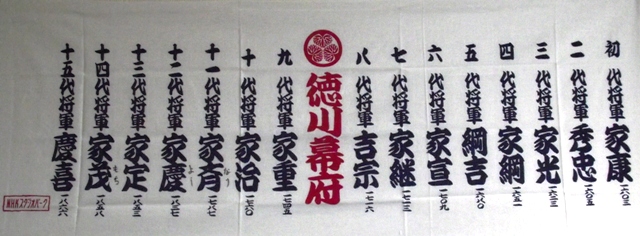 初代将軍家康一六〇三
二代将軍秀忠一六〇五
三代将軍家光一六二三
四代将軍家綱一六五一
五代将軍綱吉一六八〇
六代将軍家宣一七〇九
七代将軍家継一七一三
八代将軍吉宗一七一六
徳川幕府
九代将軍家重一七四五
十代将軍家治一七六〇
十一代将軍家斉なり一七八七
十二代将軍家慶よし一八三七
十三代将軍家定一八五三
十四代将軍家茂もち一八五八
十五代将軍慶喜一八六六
NHKスタジオパーク